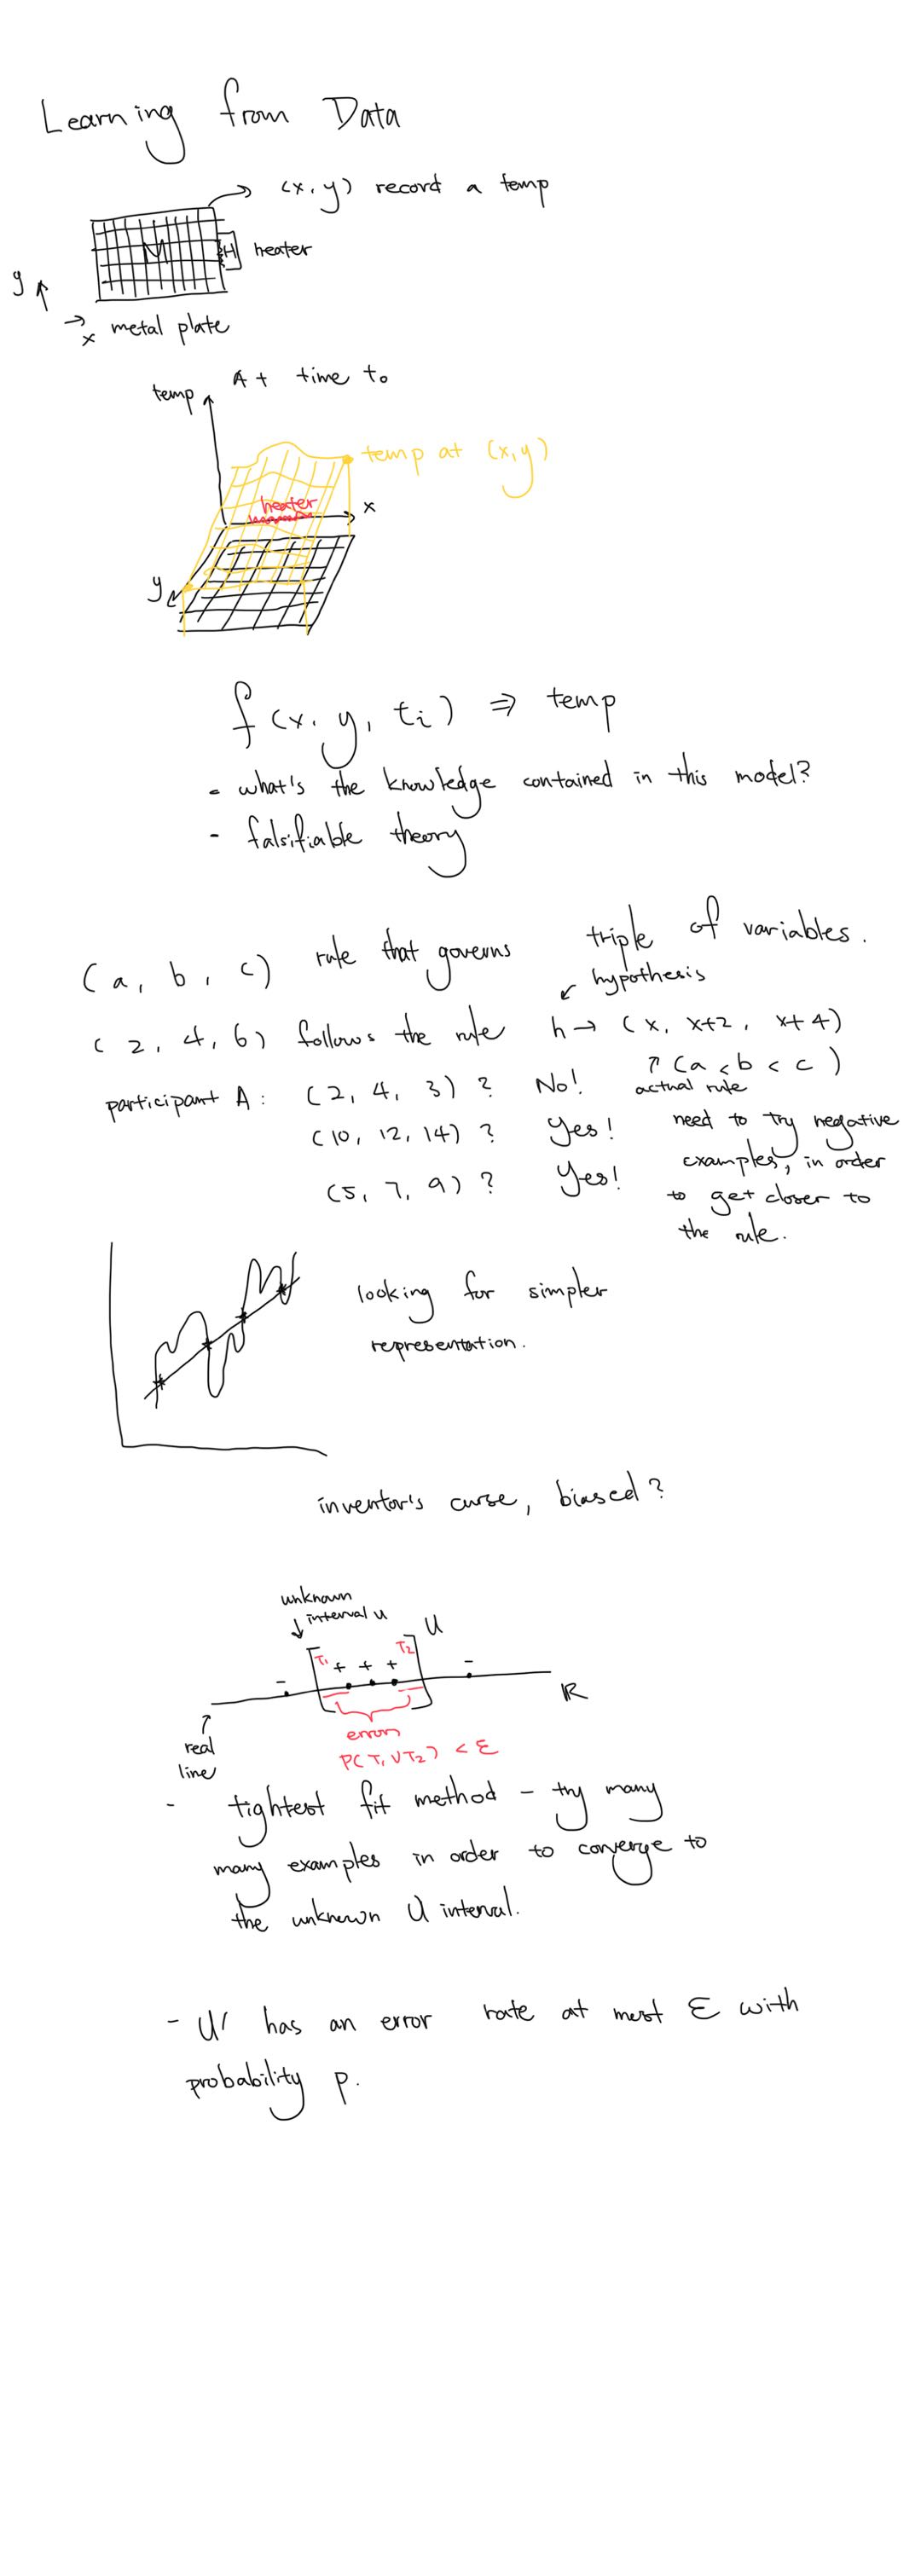 Learning from Data
(x, y) record a temp
M
H heater
y
x metal plate
temp At time t₀
temp at (x,y)
heater
x
y
f(x, y, tᵢ) ⇒ temp
- what's the knowledge contained in this model?
- falsifiable theory
(a, b, c) rule that governs triple of variables.
hypothesis
(2, 4, 6) follows the rule h → (x, x+2, x+4)
↑ (a < b < c)
actual rule
participant A: (2, 4, 3) ? No!
(10, 12, 14) ? Yes!
(5, 7, 9) ? Yes!
need to try negative
examples, in order
to get closer to
the rule.
looking for simpler
representation.
inventor's curse, biased?
unknown
interval u
U
T₁ + + + T₂
- -
ℝ
real
line
error
P(T₁ ∨ T₂) < ε
- tightest fit method – try many
many examples in order to converge to
the unknown U interval.
- U' has an error rate at most ε with
probability p.